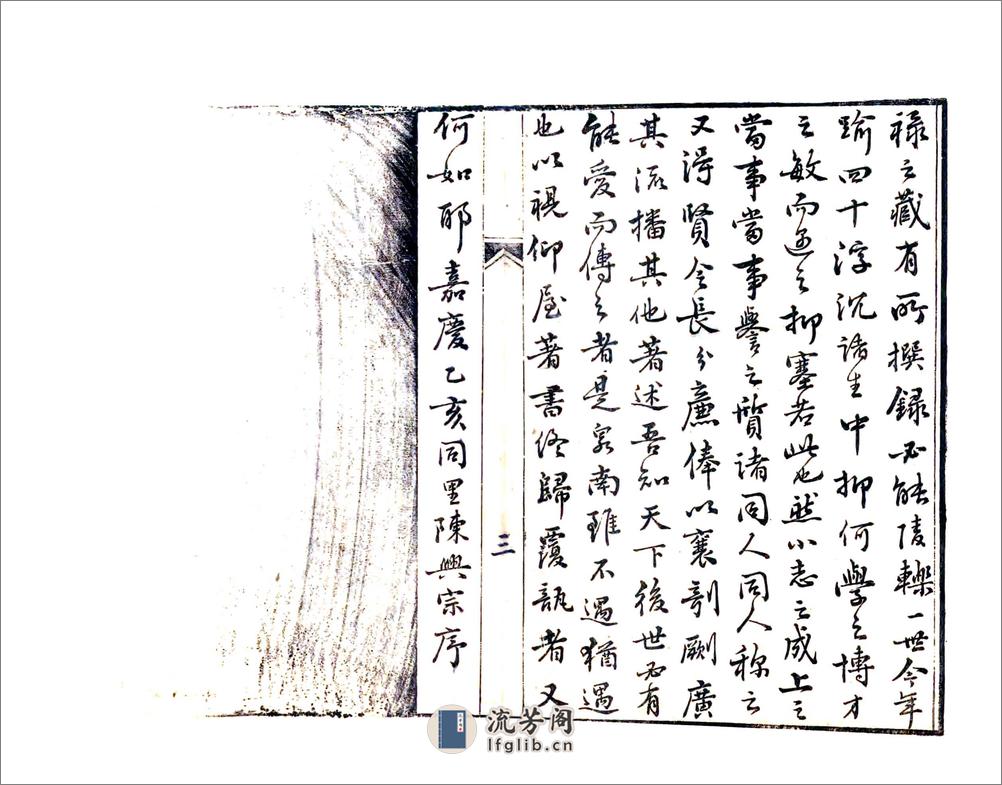 祿之藏有所撰錄必能陵轢一世今年
踰四十浮沉諸生中抑何學之博才
之敏而遇之抑塞若此也然小志之成上之
當事當事譽之質諸同人同人稱之
又得賢令長分廉俸以襄剞劂廣
其流播其他著述吾知天下後世必有
能愛而傳之者是泉南雖不遇猶遇
也以視仰屋著書終歸覆瓿者又
三
何如耶嘉慶乙亥同里陳興宗序
流芳阁
lfglib.cn